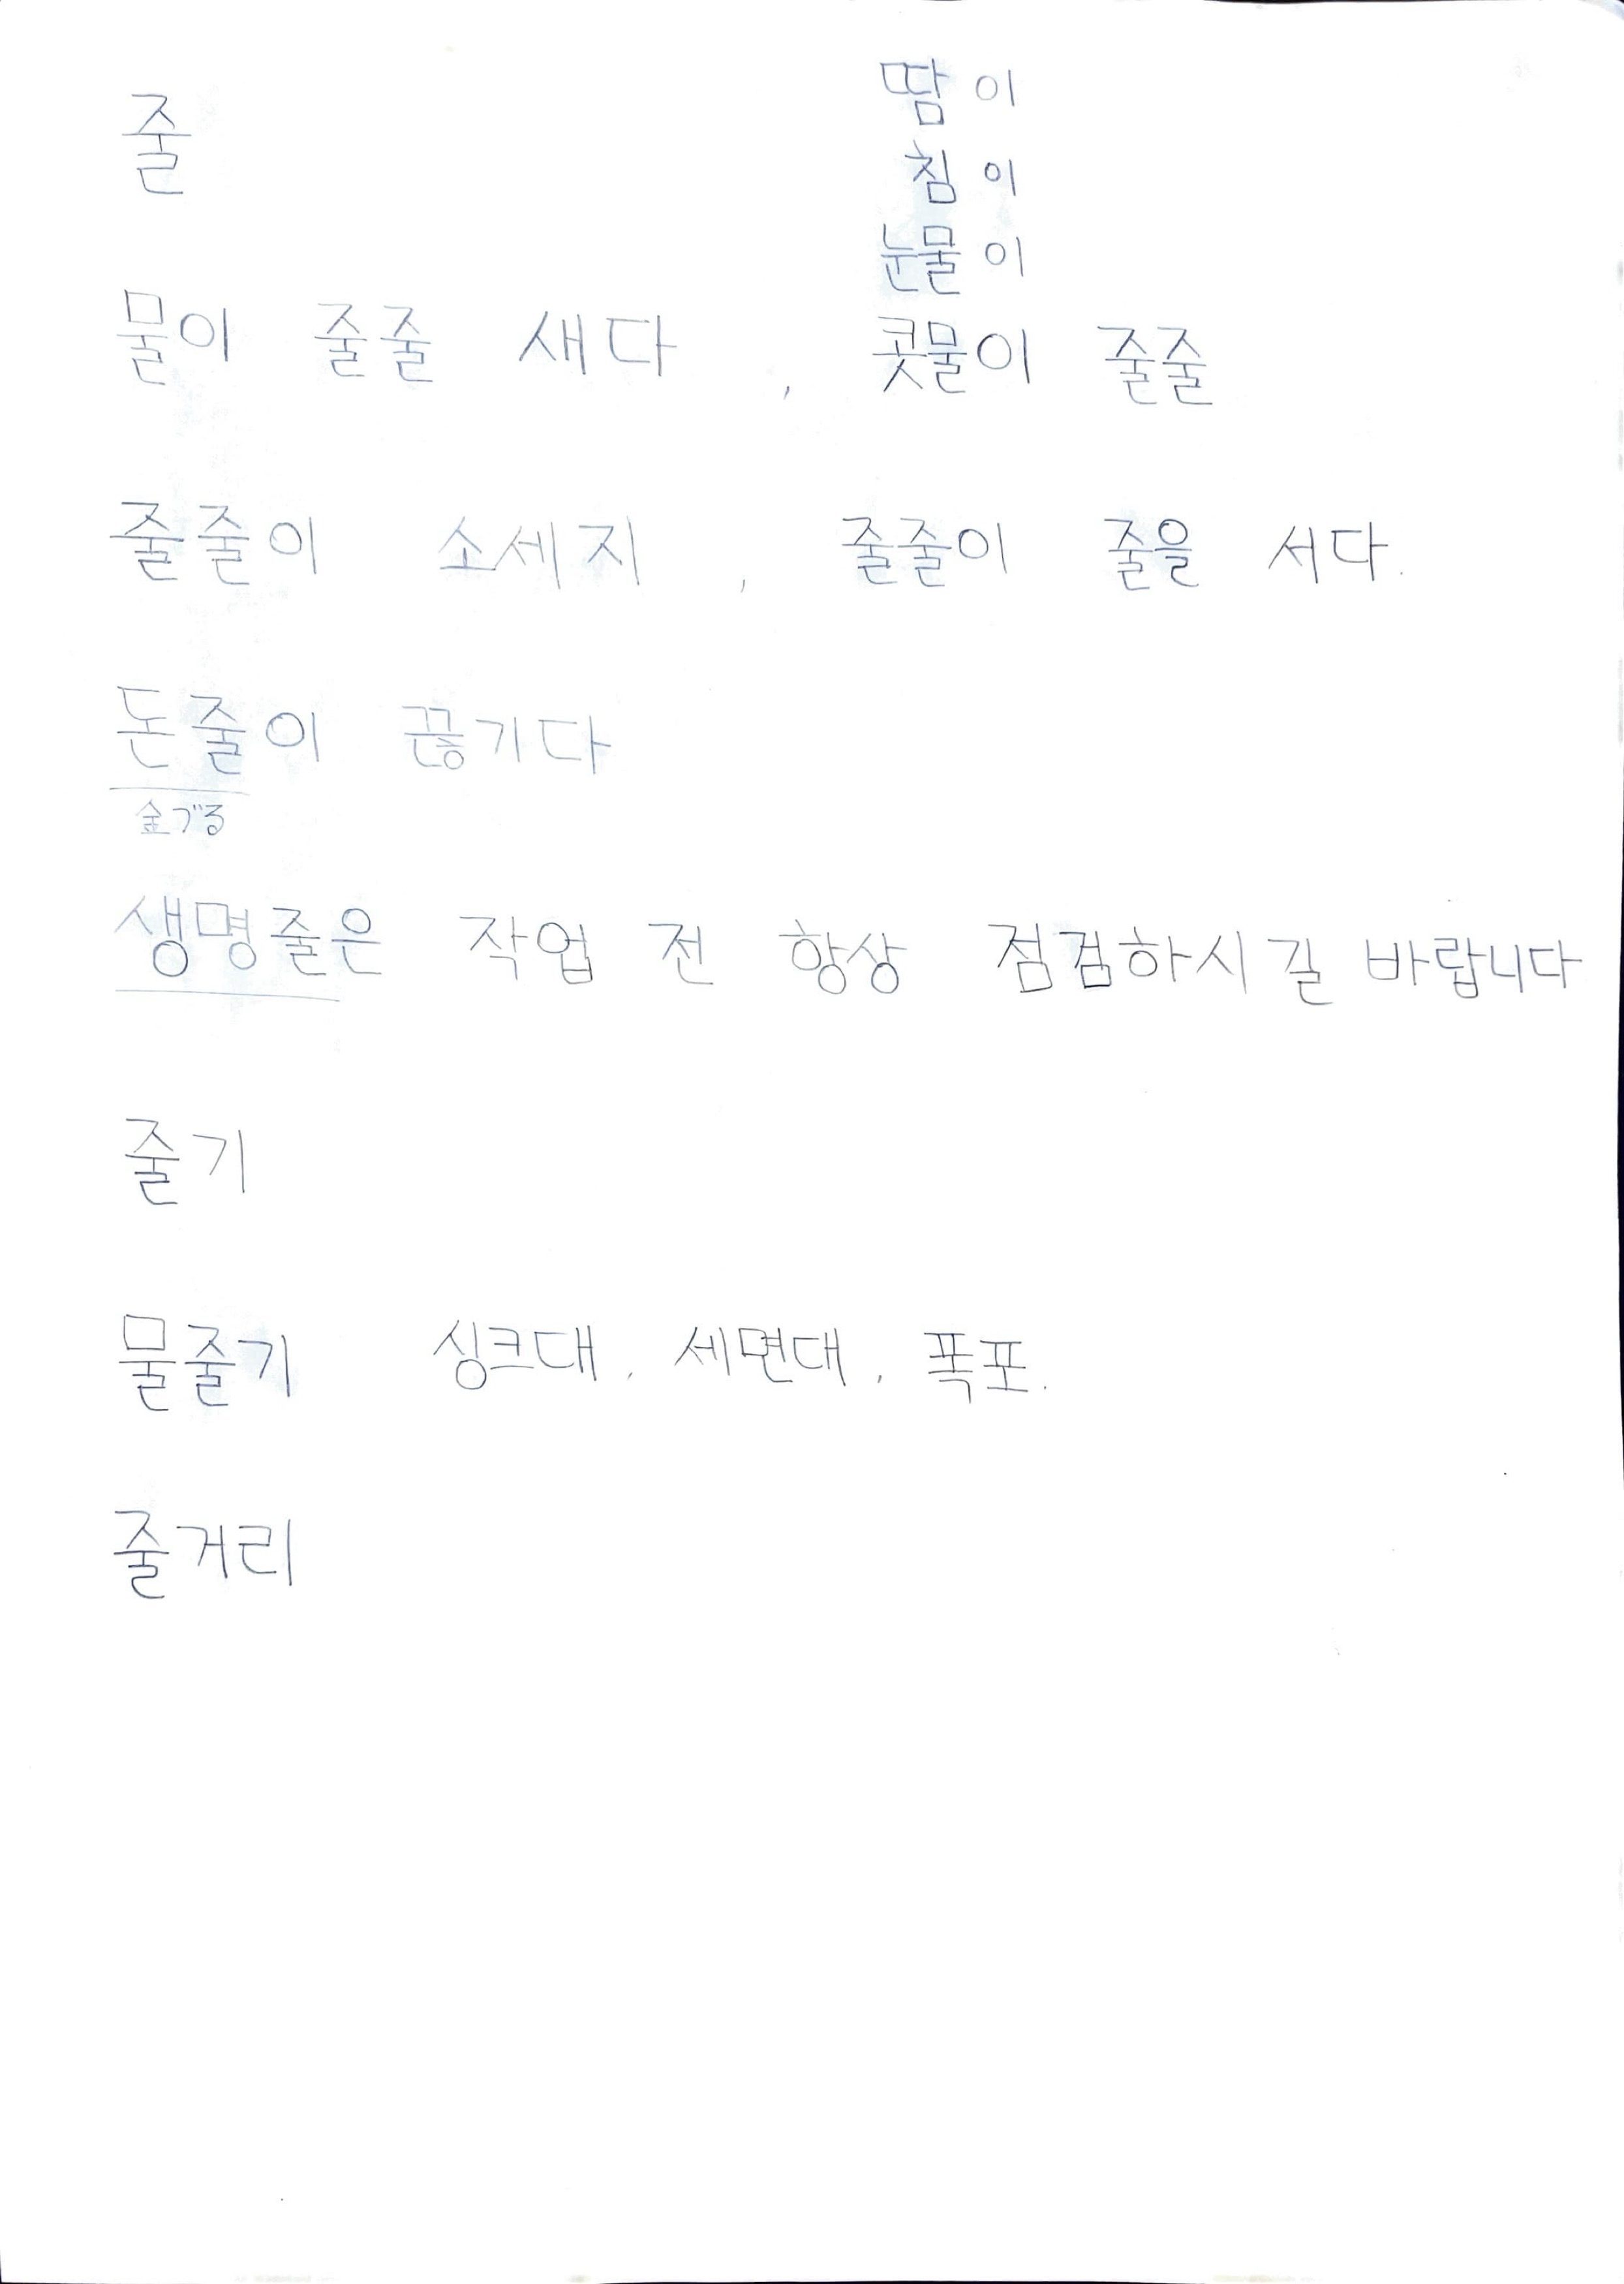 줄
땀이
침이
눈물이
물이 줄줄 새다, 콧물이 줄줄
줄줄이 소세지, 줄줄이 줄을 서다.
돈줄이 끊기다
金づる
생명줄은 작업 전 항상 점검하시길 바랍니다
줄기
물줄기 싱크대, 세면대, 폭포.
줄거리